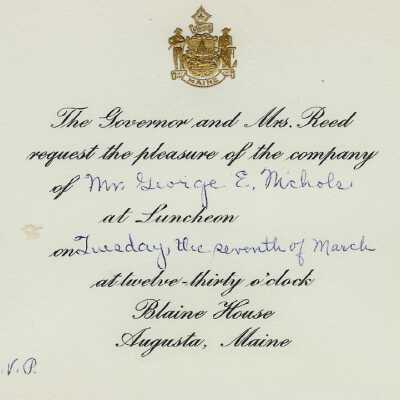 MAINE
The Governor and Mrs. Reed
request the pleasure of the company
of Mr. George E. Nichols
at Luncheon
on Tuesday, the seventh of March
at twelve-thirty o'clock
Blaine House
Augusta, Maine
.V.P.